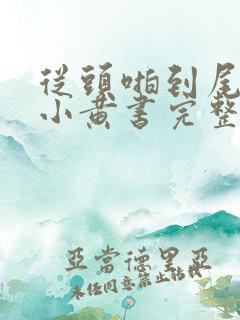 從頭啪到尾
小黃書完整
亞當德里亞
未任同意禁止转载